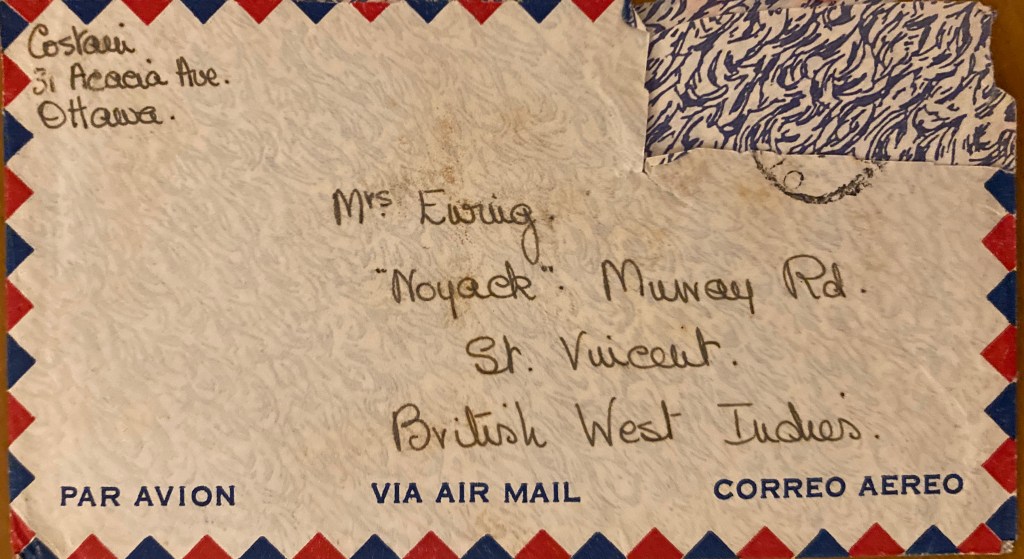 Costain
31 Acacia Ave.
Ottawa.
Mrs Ewing.
"Noyack". Murray Rd.
St. Vincent.
British West Indies.
PAR AVION
VIA AIR MAIL
CORREO AEREO